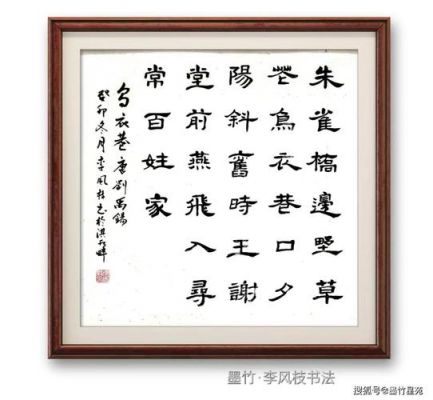 朱雀橋邊野草
花烏衣巷口夕
陽斜舊時王謝
堂前燕飛入尋
常百姓家
乌衣巷唐劉禹錫
癸卯冬月李风枝书於淇水畔
墨竹·李风枝书法
搜狐号@墨竹星苑